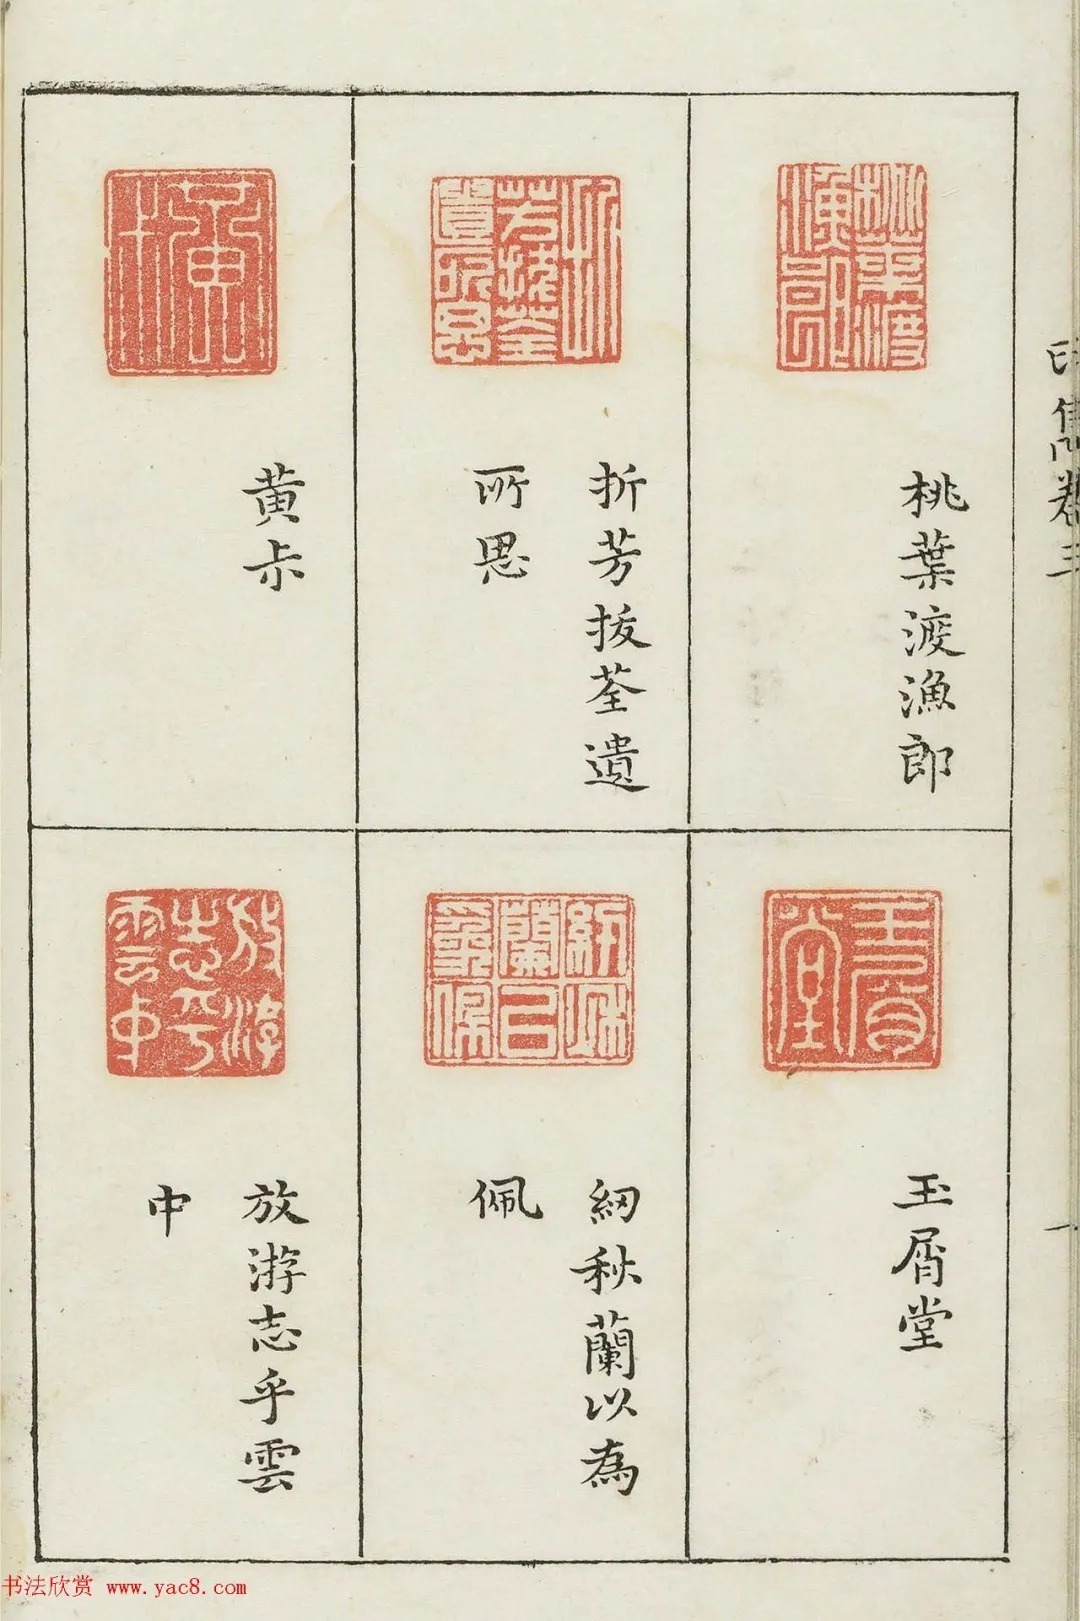 印雋卷三
一
桃葉渡漁郎
折芳拔荃遺
所思
黄朩
玉屑堂
紉秋蘭以為
佩
放游志乎雲
中
书法欣赏 www.yac8.com